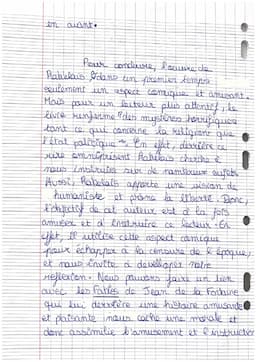 en avant.
Pour conclure, l'œuvre de
Rabelais dans un premier temps
seulement un aspect comique et amusant.
Mais pour un lecteur plus attentif, le
livre renferme "des mystères horrifiques
tant ce qui concerne la religion que
l'état politique". En effet, derrière ce
rire omniprésent Rabelais cherche à
nous instruire sur de nombreux sujets
Aussi, Rabelais apporte une vision de
humaniste et prône la liberté. Donc,
l'objectif de cet auteur est à la fois
amuser et d'instruire ce lecteur. En
effet, il utilise cette aspect comique
pour échapper à la censure de l'époque,
et nous invite à développer notre
reflexion. Nous pouvons faire un lien
avec les Fables de Jean de la Fontaine
qui lui derrière une histoire amusante
et plaisante nous cache une morale et
donc assimilie l'amusement et l'instruction